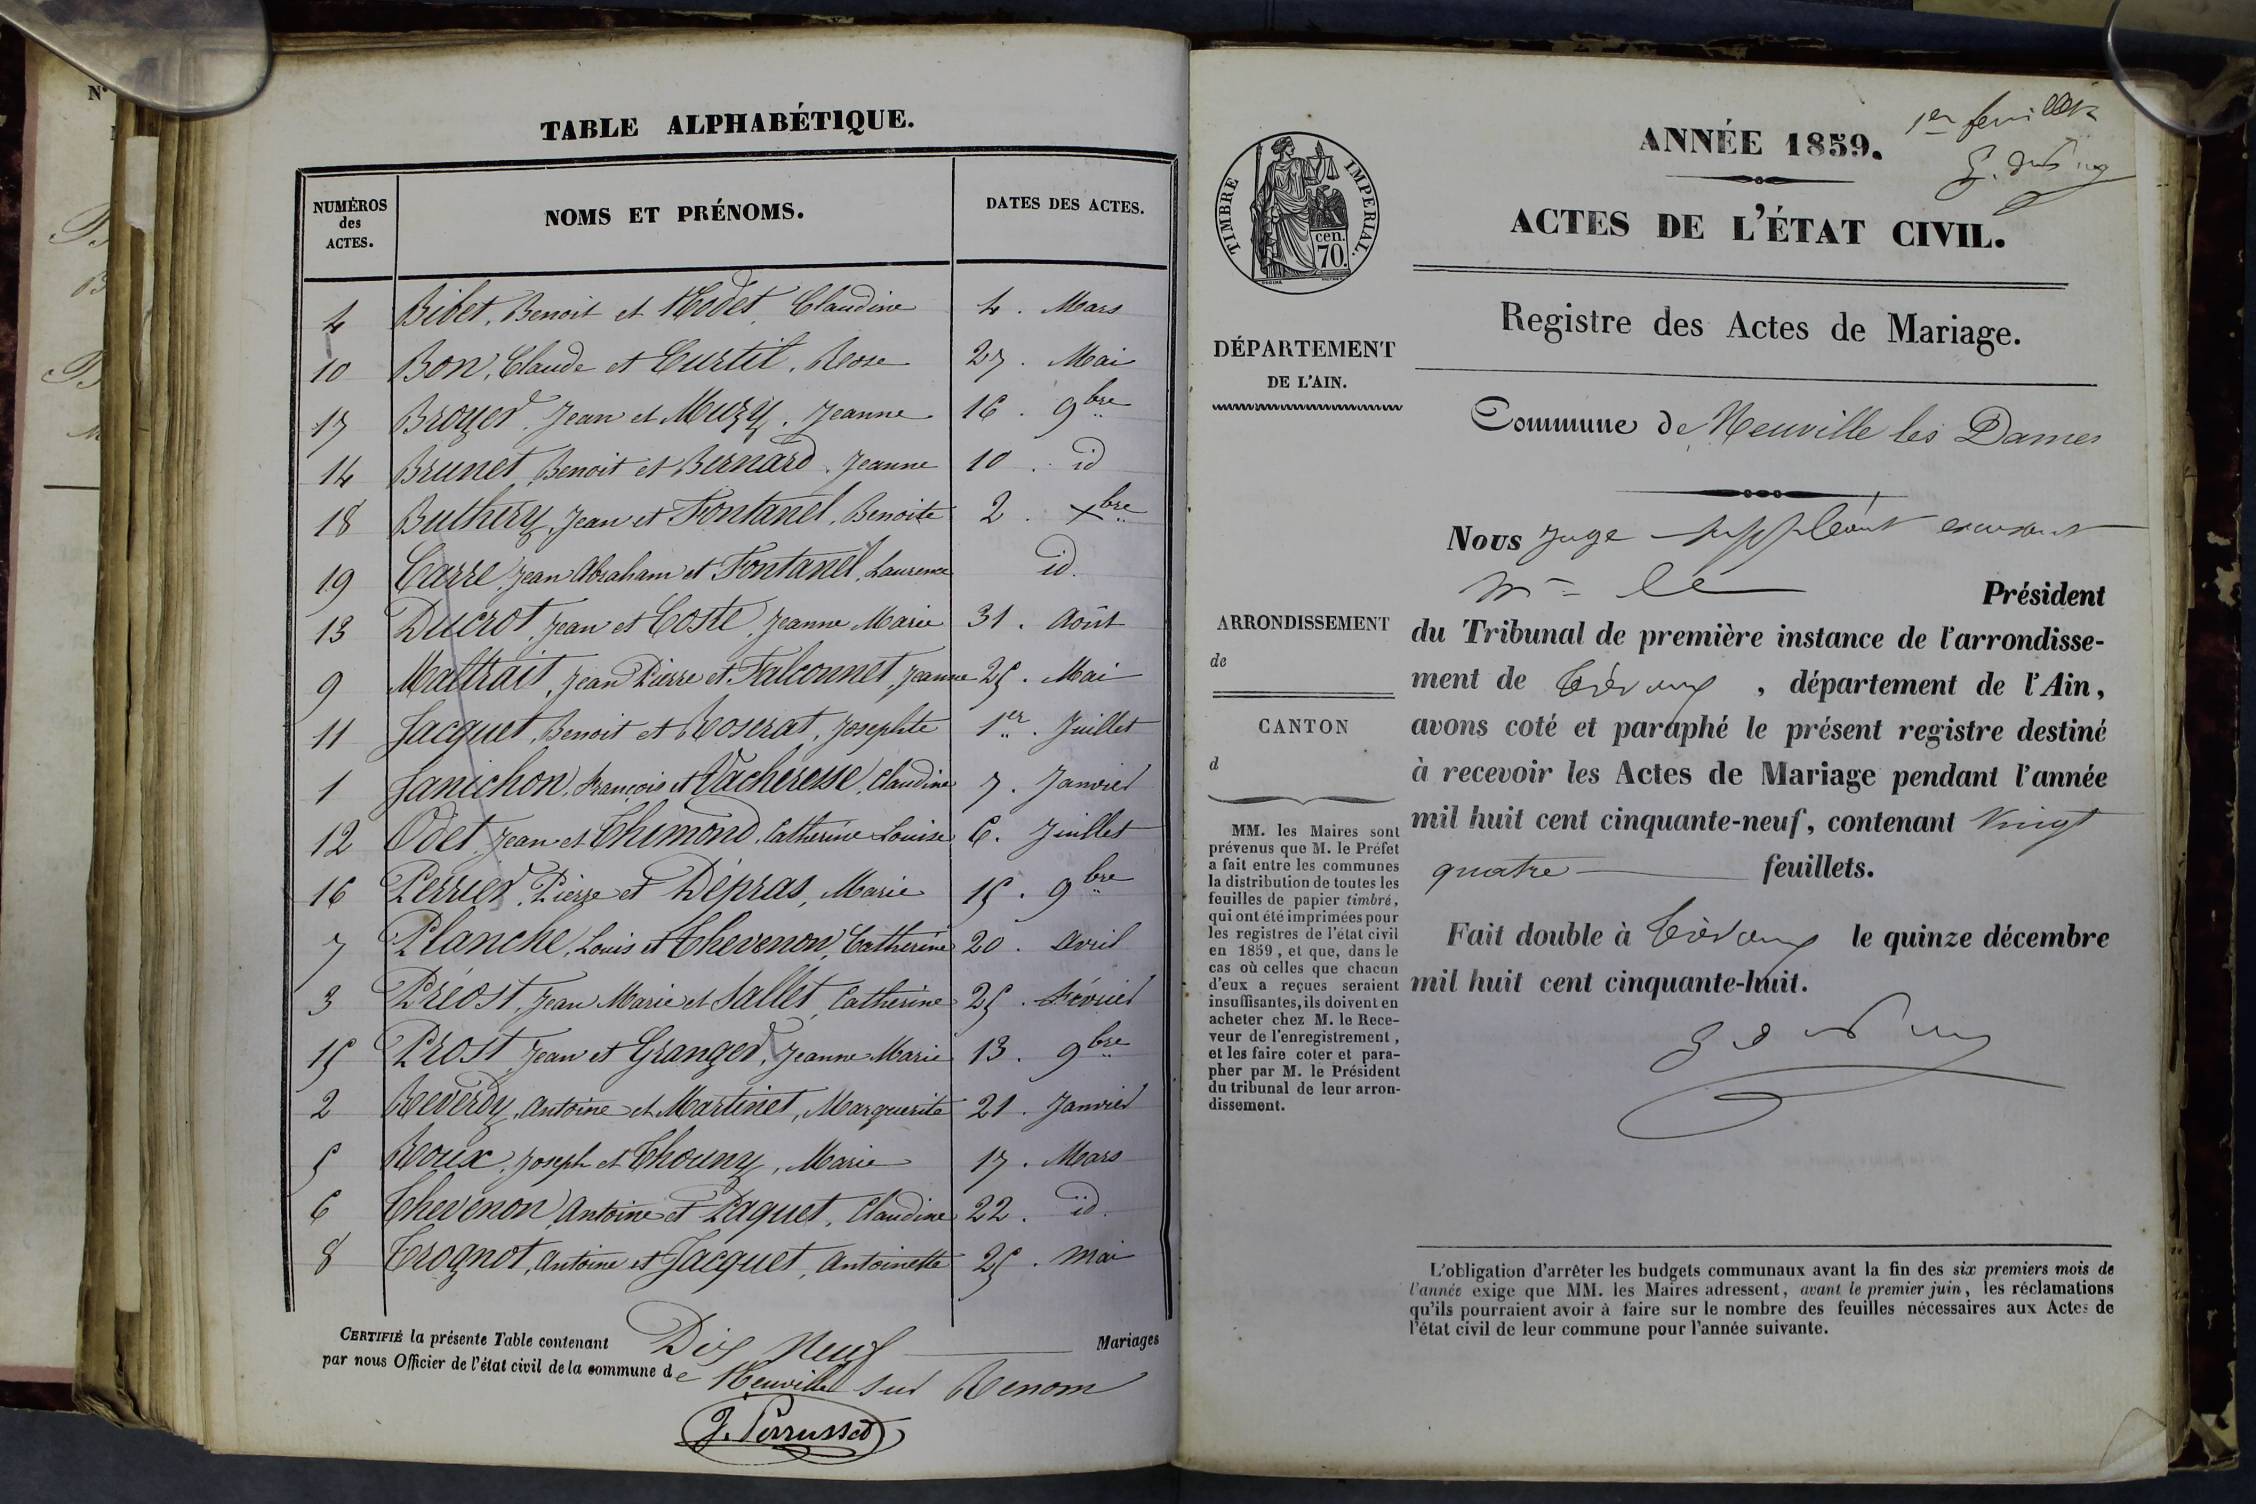 N°
TABLE ALPHABÉTIQUE.
NUMÉROS des ACTES. NOMS ET PRÉNOMS. DATES DES ACTES.
4 Bibet, Benoit et Modet, Claudine 4. Mars
10 Bon, Claude et Curtil, Rose 27. Mai
17 Broyer, Jean et Muzy, Jeanne 16. 9bre
14 Brunet, Benoit et Bernard, Jeanne 10. id
18 Buthery, Jean et Fontanel, Benoite 2. Xbre
19 Carre, Jean Abraham et Fontanel, Laurence id.
13 Ducrot, Jean et Coste, Jeanne Marie 31. Août
9 Maltrait, Jean Pierre et Falconnet, Jeanne 25. Mai
11 Jacquet, Benoit et Roserat, Josephte 1er. Juillet
1 Janichon, François et Vacheresse, Claudine 7. Janvier
12 Odet, Jean et Thimond, Catherine Louise 6. Juillet
16 Perrier, Pierre et Dépras, Marie 15. 9bre
7 Planche, Louis et Thevenon, Catherine 20. Avril
3 Préost, Jean Marie et Sallet, Catherine 25. Février
15 Prost, Jean et Granger, Jeanne Marie 13. 9bre
2 Reverdy, Antoine et Martinet, Marguerite 21. Janvier
5 Roux, Joseph et Thouny, Marie 17. Mars
6 Thevenon, Antoine et Paquet, Claudine 22. id.
8 Trognot, Antoine et Jacquet, Antoinette 25. Mai
CERTIFIÉ la présente Table contenant Dix Neuf Mariages
par nous Officier de l'état civil de la commune de Neuville sur Renom
J. Perrusset
1er feuillet
ANNÉE 1859.
ACTES DE L'ÉTAT CIVIL.
TIMBRE IMPERIAL.
cen.
70.
Registre des Actes de Mariage.
DÉPARTEMENT
DE L'AIN.
Commune de Neuville les Dames
Nous Juge suppléant excusant
Mr le Président
ARRONDISSEMENT
de
CANTON
d
du Tribunal de première instance de l'arrondisse-
ment de Trévoux, département de l'Ain,
avons coté et paraphé le présent registre destiné
à recevoir les Actes de Mariage pendant l'année
mil huit cent cinquante-neuf, contenant Vingt
quatre feuillets.
Fait double à Trévoux le quinze décembre
mil huit cent cinquante-huit.
MM. les Maires sont
prévenus que M. le Préfet
a fait entre les communes
la distribution de toutes les
feuilles de papier timbré,
qui ont été imprimées pour
les registres de l'état civil
en 1859, et que, dans le
cas où celles que chacun
d'eux a reçues seraient
insuffisantes, ils doivent en
acheter chez M. le Rece-
veur de l'enregistrement,
et les faire coter et para-
pher par M. le Président
du tribunal de leur arron-
dissement.
L'obligation d'arrêter les budgets communaux avant la fin des six premiers mois de
l'année exige que MM. les Maires adressent, avant le premier juin, les réclamations
qu'ils pourraient avoir à faire sur le nombre des feuilles nécessaires aux Actes de
l'état civil de leur commune pour l'année suivante.